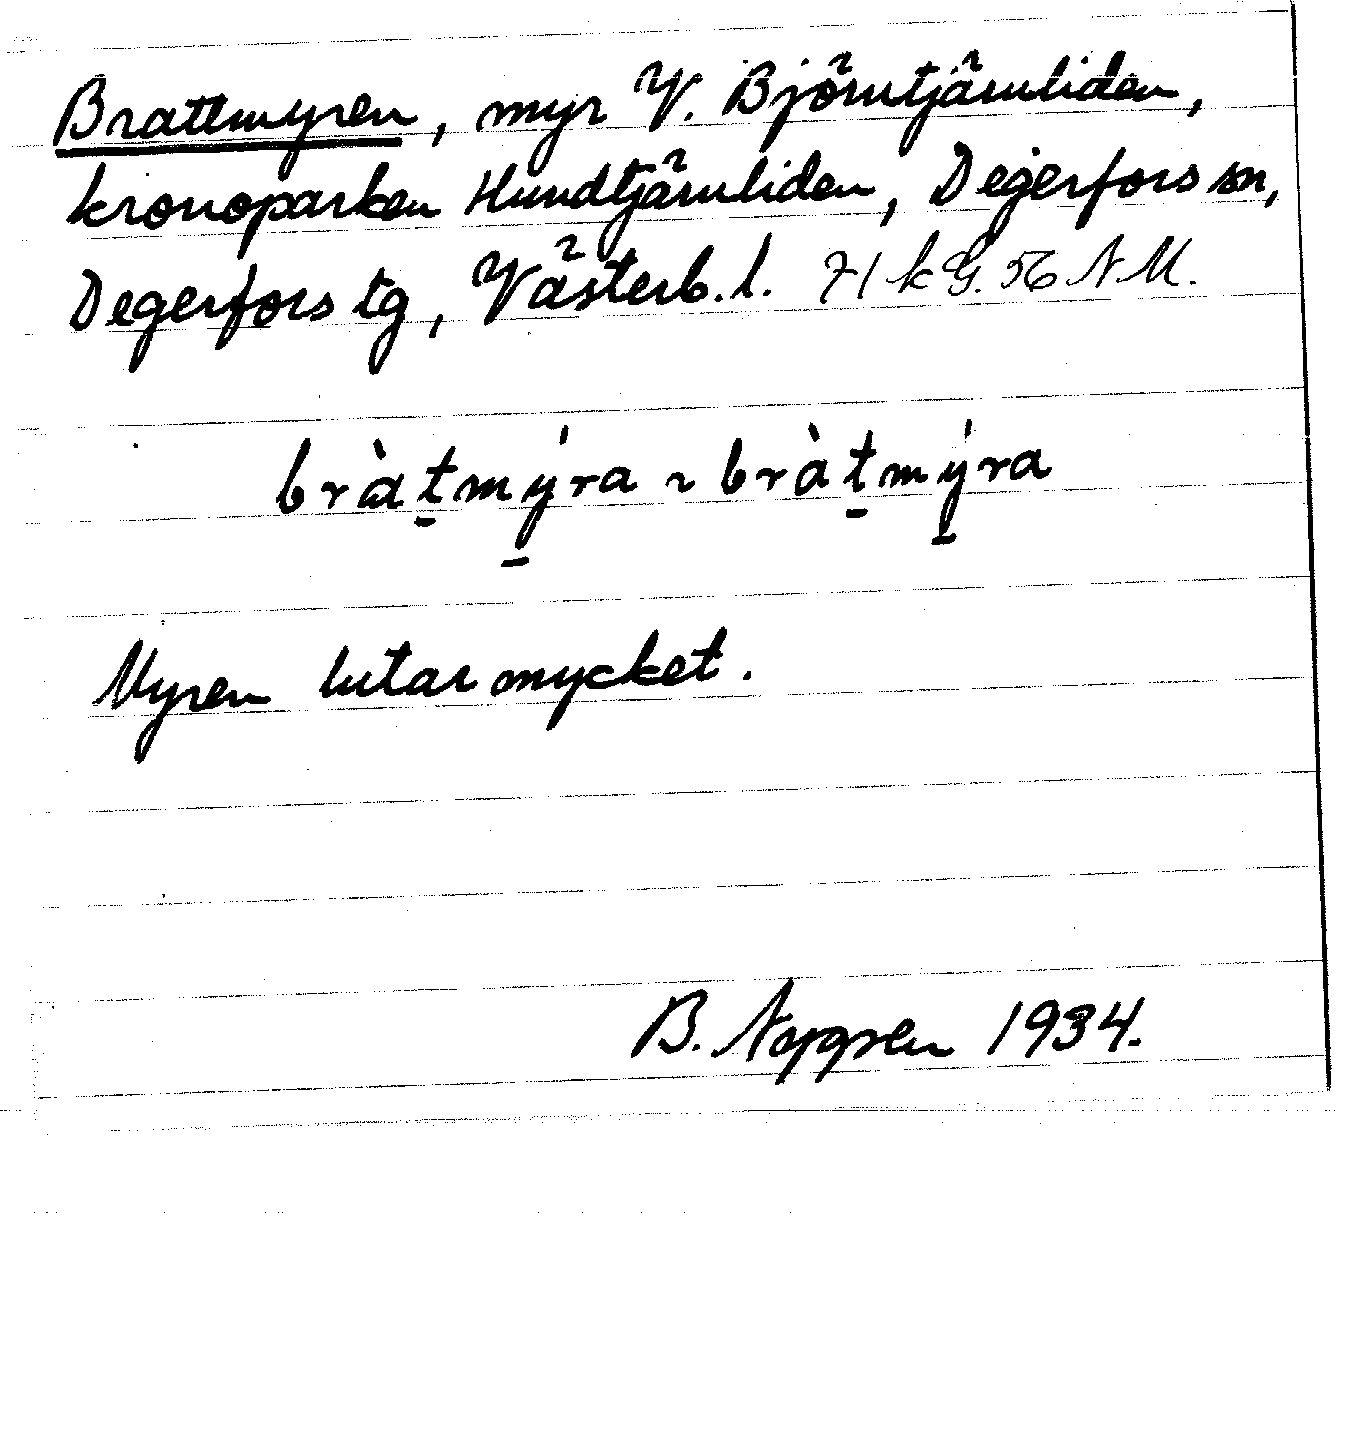 Brattmyren, myr V. Björntjärnliden,
kronoparken Hundtjärnliden, Degerfors sn,
Degerfors tg, Västerb. l. 71 k G. 56 N M.
bràt̲mý̲ra ~ bràt̲mý̲ra
Myren lutar mycket.
B. 1934.